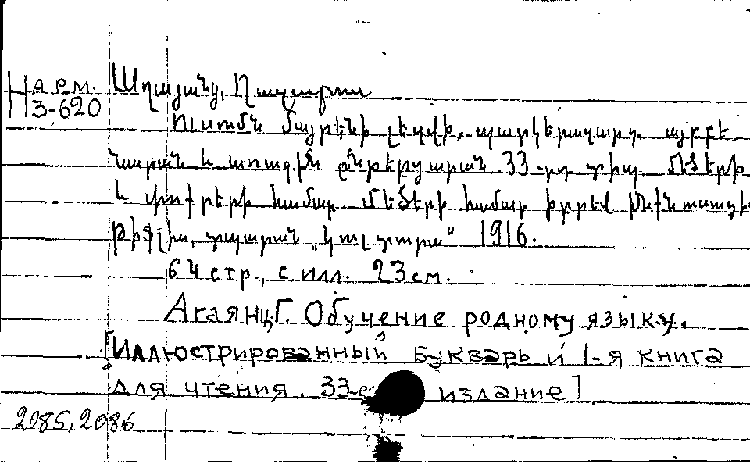 Н арм. Աղայանց, Ղազարոս
3-620
Ուսումն մայրենի լեզվի. պատկերազարդ այբբե
նարան և առաջին ընթերցարան. 33-րդ տիպ. մեծերի
և փոքրերի համար. մեծերի համար իբրև ինքնուսուցիչ
Թիֆլիս, տպարան „Կուլտուրա“ 1916.
64 стр., с илл. 23 см.
Агаянц Г. Обучение родному языку.
[Иллюстрированный букварь и 1-я книга
для чтения. 33-е издание]
2085, 2086